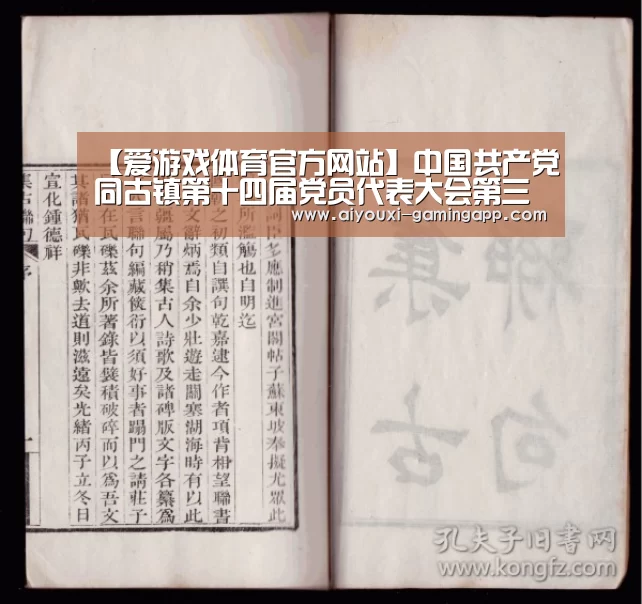 【爱游戏体育官方网站】中国共产党
同古镇第十四届党员代表大会第三
www.aiyouxi-gamingapp.com
聯集
句古
詞臣多應制進宮闕帖子蘇東坡奉擬尤眾此
所濫觴也自明迄
之初類自譔句乾嘉逮今作者項背相望聯書
文辭炳焉自余少壯遊走關塞湖海時有以此
屬乃稍集古人詩歌及諸碑版文字各纂為
言聯句編藏篋衍以須好事者蹋門之請莊子
在瓦礫茲余所著錄皆襞積破碎而以為吾文
其諸猶瓦礫非歟去道則滋遠矣光緒丙子立冬日
宣化鍾德祥
集古聯句 序
一
孔夫子旧书网
www.kongfz.com